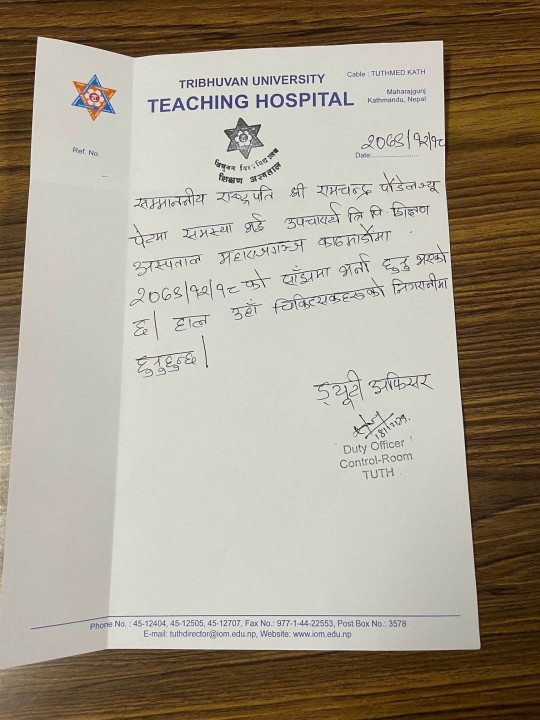 TRIBHUVAN UNIVERSITY
TEACHING HOSPITAL
Cable : TUTHMED KATH
Maharajgunj
Kathmandu, Nepal
Ref. No.
त्रिभुवन विश्वविद्यालय
शिक्षण अस्पताल
Date: २०७९/१२/१८
सम्माननीय राष्ट्रपति श्री रामचन्द्र पौडेलज्यू
पेटमा समस्या भई उपचारार्थ त्रि वि शिक्षण
अस्पताल महाराजगञ्ज काठमाडौंमा
२०७९/१२/१८ को साँझमा भर्ना हुनु भएको
छ। हाल उहाँ चिकित्सकहरुको निगरानीमा
हुनुहुन्छ।
ड्यूटी अफिसर
Duty Officer
Control-Room
TUTH
Phone No. : 45-12404, 45-12505, 45-12707, Fax No.: 977-1-44-22553, Post Box No.: 3578
E-mail: tuthdirector@iom.edu.np, Website: www.iom.edu.np